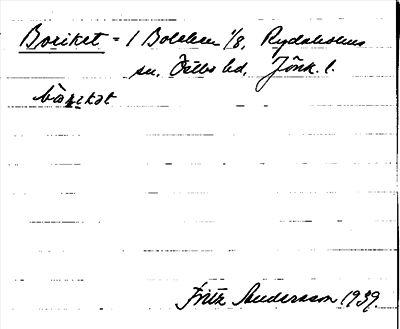 Boriket = 1 Bolsken 1/8, Rydaholms
sn, Östbo hd, Jönk. l.
bo̱rikət
Fritz Andersson 1939.